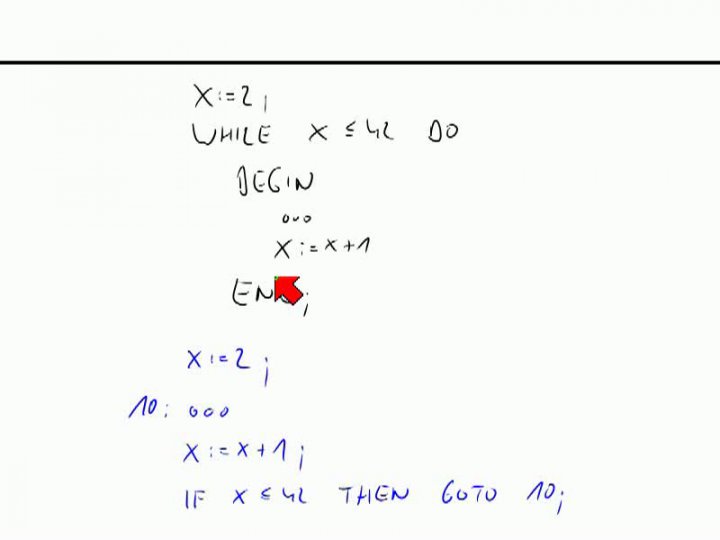 X:=2;
WHILE X ≤ 42 DO
BEGIN
ooo
X:=x+1
END;
X:=2;
10: ooo
X:=x+1;
IF X ≤ 42 THEN GOTO 10;